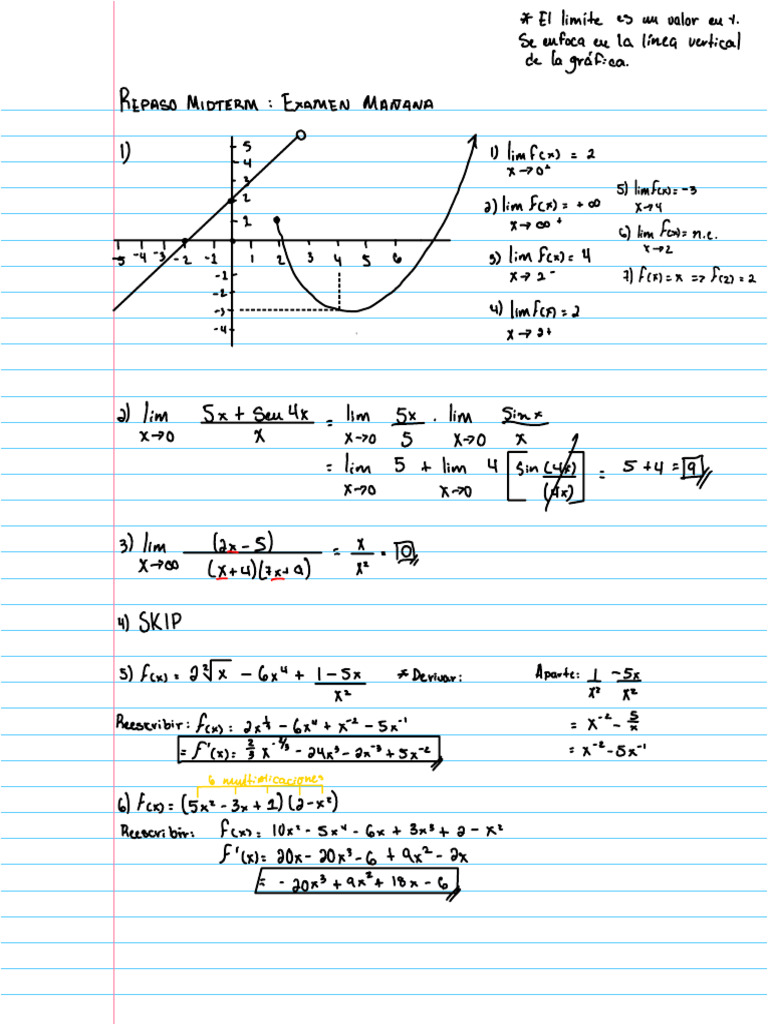 * El limite es un valor en y.
Se enfoca en la línea vertical
de la gráfica.
Repaso Midterm : Examen Mañana
1)
5
4
3
2
1
-5 -4 -3 -2 -1 1 2 3 4 5 6
-1
-2
-3
-4
1) lim f(x) = 2
x→0⁺
2) lim f(x) = +∞
x→∞ +
3) lim f(x) = 4
x→2⁻
4) lim f(x) = 2
x→2+
5) lim f(x) = -3
x→4
6) lim f(x) = n.e.
x→2
7) f(x) = x => f(2) = 2
2) lim 5x + sen 4x / x = lim 5x/5 · lim sin x / x
x→0 x→0 x→0
= lim 5 + lim 4 [sin (4x) / (4x)] = 5 + 4 = 9
x→0 x→0
3) lim (2x - 5) / (x + 4)(7x + 9) = x/x² = 0
x→∞
4) SKIP
5) f(x) = 2 ³√x - 6x⁴ + 1 - 5x / x² * Derivar: Aparte: 1/x² -5x/x²
Reescribir: f(x): 2x^1/3 - 6x⁴ + x⁻² - 5x⁻¹ = x⁻² - 5/x
= f'(x): 2/3 x^-2/3 - 24x³ - 2x⁻³ + 5x⁻² = x⁻² - 5x⁻¹
6 multiplicaciones
6) f(x) = (5x² - 3x + 1)(2 - x²)
Reescribir: f(x): 10x² - 5x⁴ - 6x + 3x³ + 2 - x²
f'(x): 20x - 20x³ - 6 + 9x² - 2x
= - 20x³ + 9x² + 18x - 6